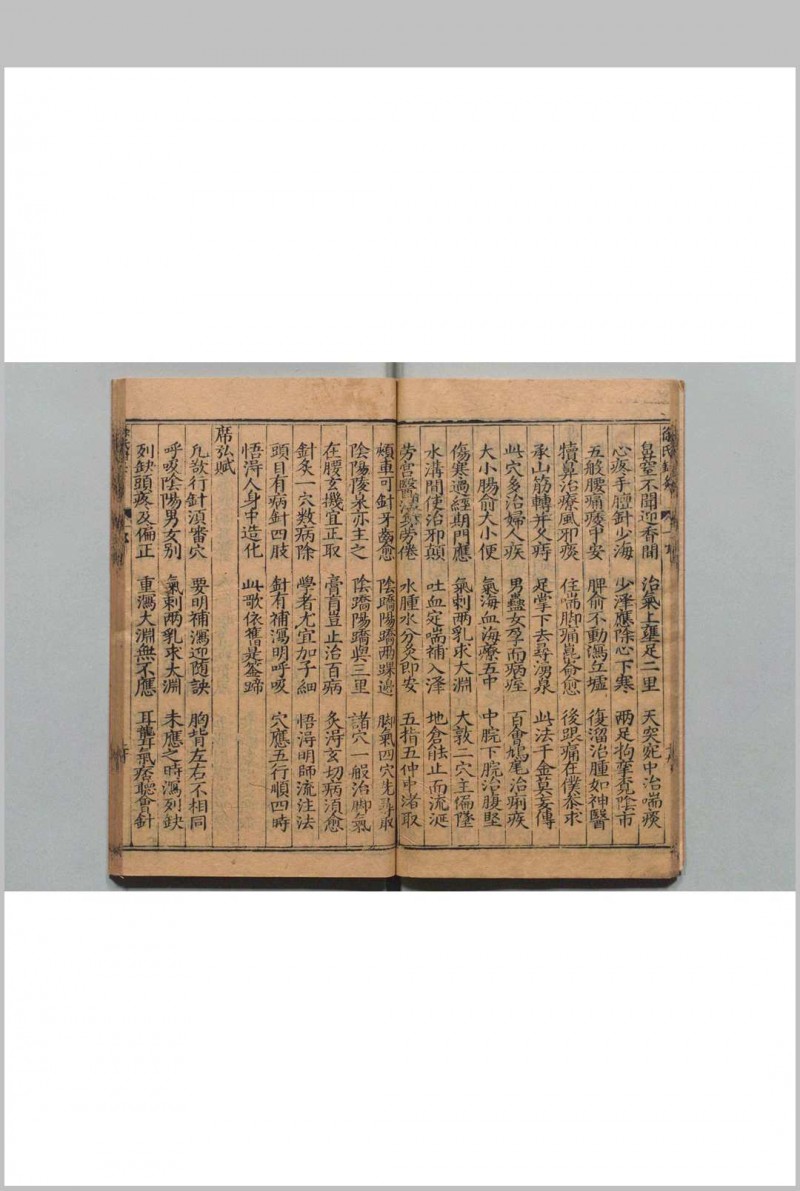 鼻窒不聞迎香間　治氣上壅足三里　天突宛中治喘痰
心疼手顫針少海　少澤應除心下寒　兩足拘攣覓陰市
五般腰痛委中安　脾俞不動瀉丘墟　復溜治腫如神醫
犢鼻治療風邪疼　住喘脚痛崑崙愈　後跟痛在僕參求
承山筋轉并久痔　足掌下去尋湧泉　此法千金莫妄傳
此穴多治婦人疾　男蠱女孕而病痊　百會鳩尾治痢疾
大小腸俞大小便　氣海血海療五中　中脘下脘治腹堅
傷寒過經期門應　氣刺两乳求大淵　大敦二穴主偏墜
水溝間使治邪顛　吐血定喘補尺澤　地倉能止而流涎
勞宮醫得身勞倦　水腫水分灸即安　五指不伸中渚取
頰車可針牙齒愈　陰蹻陽蹻兩踝邊　脚氣四穴先尋取
陰陽陵泉亦主之　陰蹻陽蹻與三里　諸穴一般治脚氣
在腰玄機宜正取　膏肓豈止治百病　灸淂玄切病須愈
針灸一穴数病除　學者尤宜加子細　悟淂明師流注法
頭目有病針四肢　針有補瀉明呼吸　穴應五行順四時
悟淂人身中造化　此歌依舊是筌蹄
席弘賦
凢欲行針須審穴　要明補瀉迎随訣　胸背左右不相同
呼吸陰陽男女别　氣刺两乳求大淵　未應之時瀉列缺
列缺頭疼及偏正　重瀉大淵無不應　耳聾氣痞聽會針